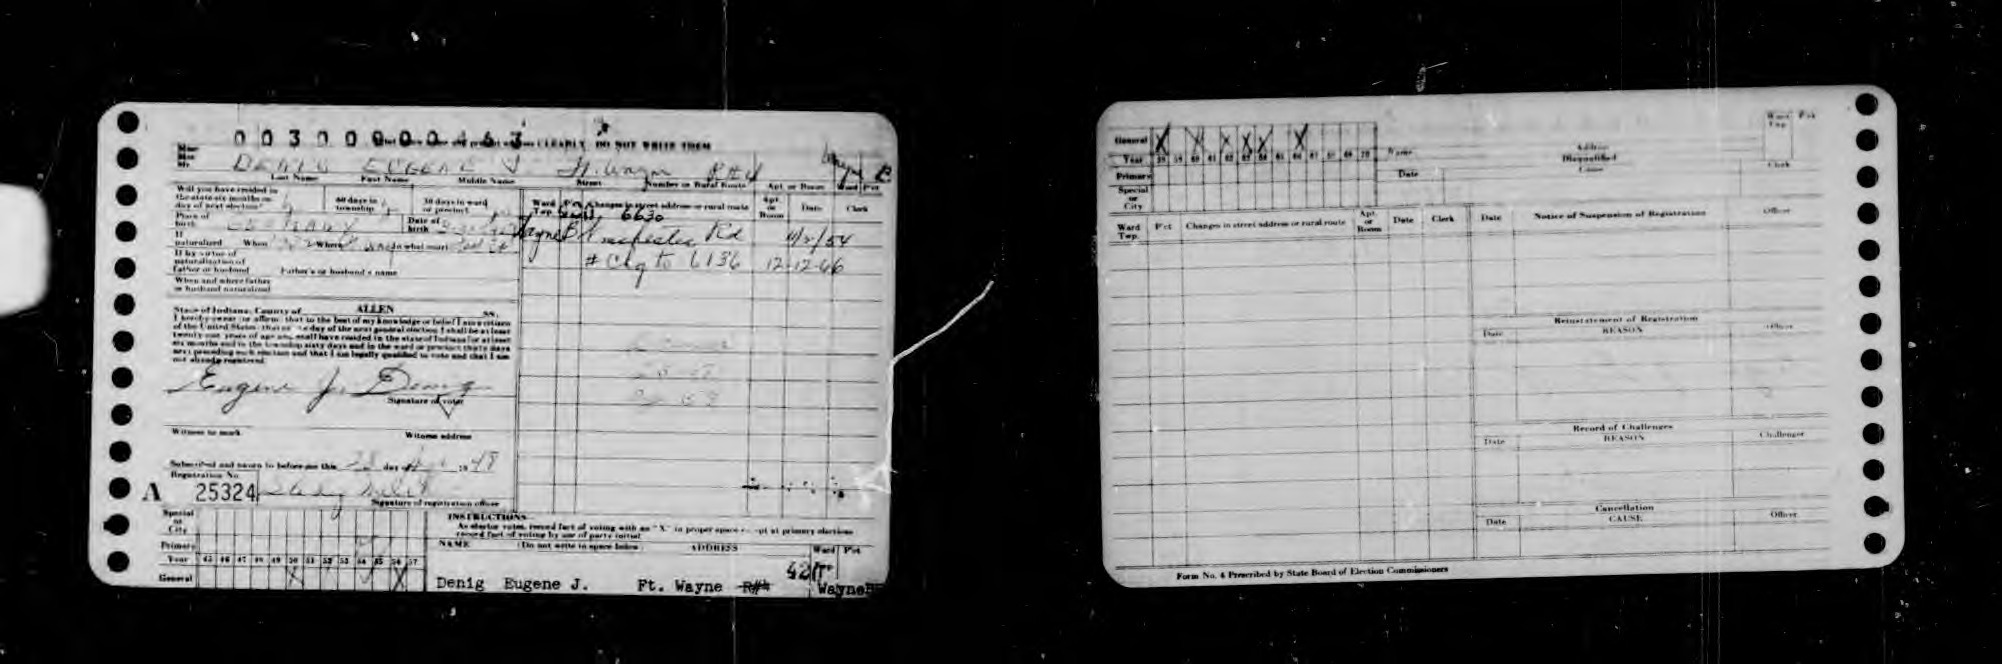 00300000463 CLEARLY. DO NOT WRITE THEM
DENIG EUGENE J Ft. Wayne R#4
Last Name First Name Middle Name Street Number or Rural Route Apt. or Room Ward P'ct
Will you have resided in the state six months on day of next election? 60 days in township 30 days in ward or precinct
Place of birth GERMANY Date of birth
If naturalized When Where In what court
If by virtue of naturalization of father or husband Father's or husband's name
When and where father or husband naturalized
Ward Twp. P'ct Changes in street address or rural route Apt. or Room Date Clerk
6630
Wayne B Winchester Rd 4/2/54
# Chg to 6136 12-12-66
State of Indiana, County of ALLEN SS.
I hereby swear or affirm that to the best of my knowledge or belief I am a citizen
of the United States that on the day of the next general election I shall be at least
twenty-one years of age and shall have resided in the state of Indiana for at least
six months and in the township sixty days and in the ward or precinct thirty days
next preceding such election and that I am legally qualified to vote and that I am
not already registered.
Eugene J. Denig
Signature of voter
Witness to mark Witness address
Subscribed and sworn to before me this 28 day of 1948
Registration No.
A 25324
Signature of registration officer
Special or City
Primary
Year 45 46 47 48 49 50 51 52 53 54 55 56 57
General X X
INSTRUCTIONS
As elector votes, record fact of voting with an "X" in proper space except at primary elections
record fact of voting by use of party initial
NAME (Do not write in space below) ADDRESS Ward P'ct
Denig Eugene J. Ft. Wayne R#4 Wayne B
General X X X X X X
Year 58 59 60 61 62 63 64 65 66 67 68 69 70
Primary
Special or City
Name Address
Disqualified
Date Cause Clerk
Ward Twp. P'ct
Ward Twp. P'ct Changes in street address or rural route Apt. or Room Date Clerk
Date Notice of Suspension of Registration Officer
Reinstatement of Registration
Date REASON Officer
Record of Challenges
Date REASON Challenger
Cancellation
Date CAUSE Officer
Form No. 4 Prescribed by State Board of Election Commissioners